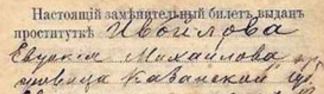 Настоящій замѣнительный билетъ выданъ
проституткѣ Ивойлова
Евгенія Михайлова
Казанской